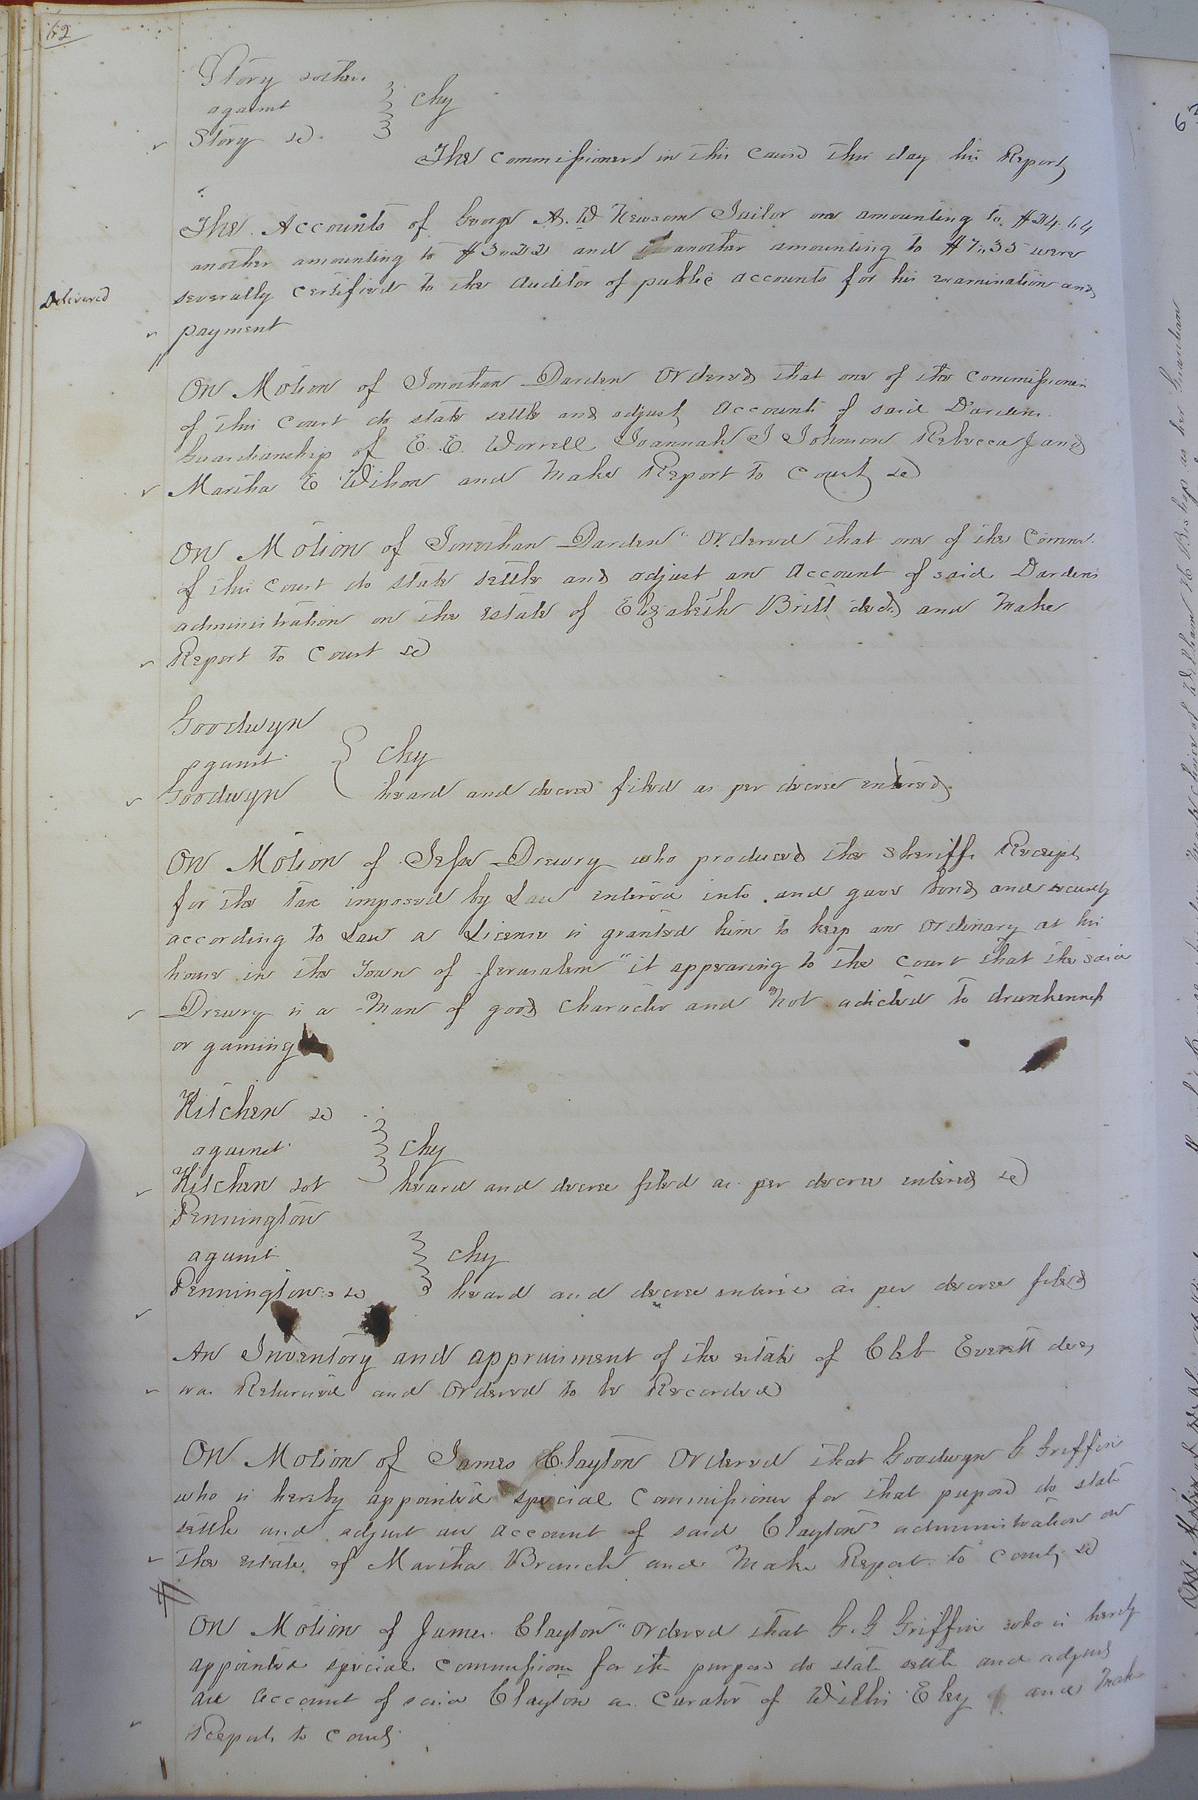 62
Story &others
against } chy
Story &c.
The commissioners in this cause this day his Report
The Accounts of George A. W Newsom Jailor one amounting to
another amounting to and another amounting to $7.35 were
Delivered
severally certified to the Auditor of public accounts for his examination and
payment
On Motion of Jonathan Darden Ordered that one of the commissioners
of this Court do state settle and adjust accounts of said Dardens
Guardianship of E. E. Worrell Joannah J Johnson Rebecca J and
Martha E Wilson and Make Report to Court &c
On Motion of Jonathan Darden" Ordered that one of the Comms.
of this court do state settle and adjust an Account of said Dardens
administration on the estate of Elizabeth Britt decd. and Make
Report to Court &c
Goodwyn
against } chy
Goodwyn heard and decree filed as per decree entered.
On Motion of Jesse Drewry who produced the sheriffs Receipt
for the tax imposed by Law entered into and gave bond and security
according to Law a License is granted him to keep an Ordinary at his
house in the Town of Jerusalem" it appearing to the court that the said
Drewry is a Man of good character and Not adicted to drunkenness
or gaming
Kitchen &c
against } chy
Kitchen heard and decree filed as per decree entered &c
Pennington
against } chy
Pennington &c heard and decree entered as per decree filed
An Inventory and appraisment of the estate of Everett decd
was Returned and Ordered to be Recorded
On Motion of James Clayton Ordered that Goodwyn G Griffin
who is hereby appointed special Commissioner for that purpose do state
settle and adjust an account of said Claytons administration on
the estate of Martha Branch and Make Report to Court &c
On Motion of James Clayton" Ordered that G. G Griffin who is hereby
appointed special commissioner for the purpose do state settle and adjust
an account of said Clayton as Curator of Willis Eley and Make
Report to Court